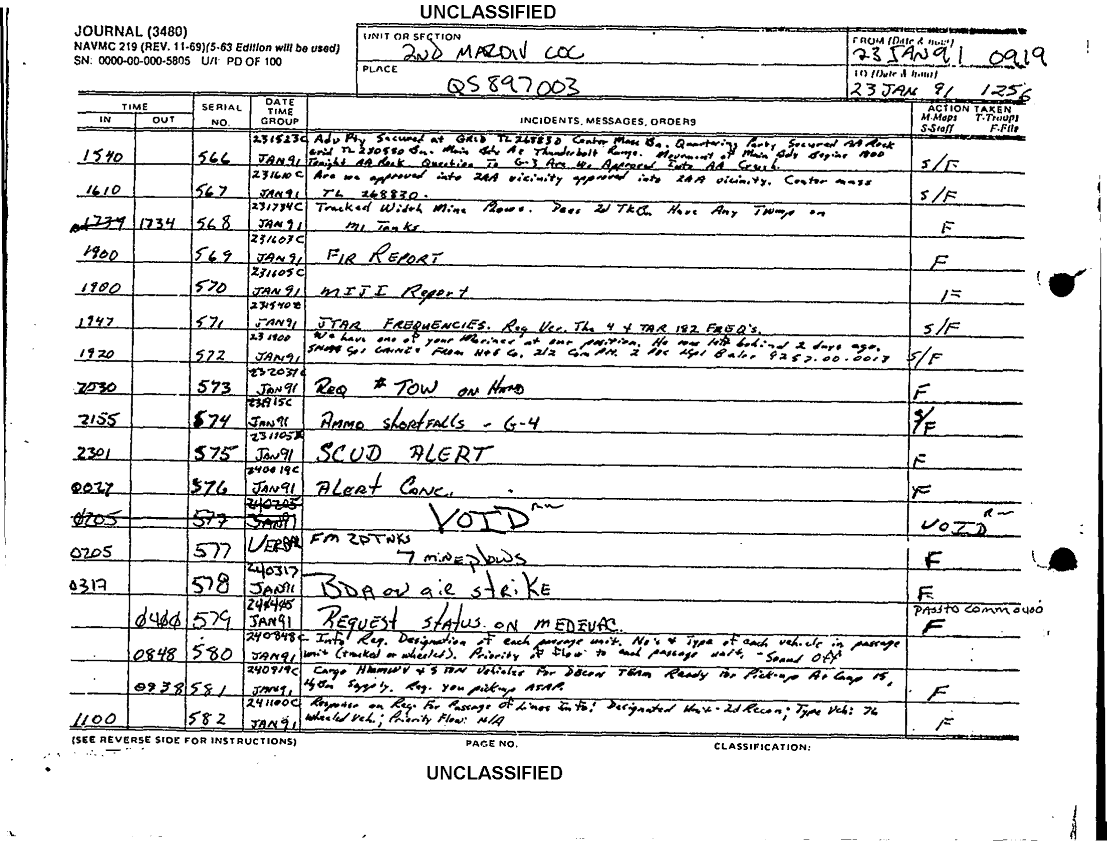 UNCLASSIFIED
JOURNAL (3480)
NAVMC 219 (REV. 11-69)(5-63 Edition will be used)
SN: 0000-00-000-5805 U/I: PD OF 100
UNIT OR SECTION
2ND MARDIV COC
PLACE
QS897003
FROM (Date & hour)
23 JAN 91 0919
TO (Date & hour)
23 JAN 91 1256
TIME
IN OUT
SERIAL NO.
DATE TIME GROUP
INCIDENTS, MESSAGES, ORDERS
ACTION TAKEN
M-Maps T-Troops
S-Staff F-File
231523C Adv Pty. Secured at GRID TL 268830 Center Mass Bn. Quartering Party Secured AA Rock
1540 566 JAN 91 grid TL 230580 Bn. Main Bdy At Thunderbolt Range. Movement of Main Bdy Begins 1800
Tonight AA Rock. Question To G-3 Are We Approved Into AA Crush. S/F
231610C Are we approved into 2AA vicinity approved into 2AA vicinity. Center mass
1610 567 JAN 91 TL 268830. S/F
231734C Tracked Width Mine Plows. Does 2d TkBn Have Any TWMP on
1734 1734 568 JAN 91 M1 Tanks F
231603C
1900 569 JAN 91 FIR REPORT F
231605C
1900 570 JAN 91 MIJI Report F
231540Z
1947 571 JAN 91 JTAR FREQUENCIES. Req Ver. The 4 TAR 182 FREQ's. S/F
231900 We have one of your Marines at our position. He was left behind 2 days ago.
1920 572 JAN 91 From H+S Co. 2/2 S/F
232037C
2030 573 JAN 91 REQ # TOW ON HAND F
231915C
2155 574 JAN 91 AMMO shortfalls - G-4 S/F
231105Z
2301 575 JAN 91 SCUD ALERT F
240019C
0027 576 JAN 91 ALERT CONC. F
240205
0205 577 JAN 91 VOID VOID
0205 577 VERBAL FM 2DTNKS
7 mineplows F
240317
0317 578 JAN 91 BDA on air strike F
240445 PASS TO COMM 0400
0400 579 JAN 91 REQUEST STATUS ON MEDEVAC. F
240848C Info Req. Designation of each passage unit. No's & Type of each vehicle in passage
0848 580 JAN 91 unit (tracked or wheeled). Priority of flow to each passage unit. - Send Off
240919C Cargo HMMWV & 5 TON Vehicles For DECON TEAM Ready For Pick-up At Camp 15,
0938 581 JAN 91 Supply. Req. you pickup ASAP. F
241100C Response on Req. For Passage Of Lines Info: Designated Unit - 2d Recon; Type Veh: 76
1100 582 JAN 91 wheeled Veh; Priority Flow: N/A F
(SEE REVERSE SIDE FOR INSTRUCTIONS) PAGE NO. CLASSIFICATION:
UNCLASSIFIED